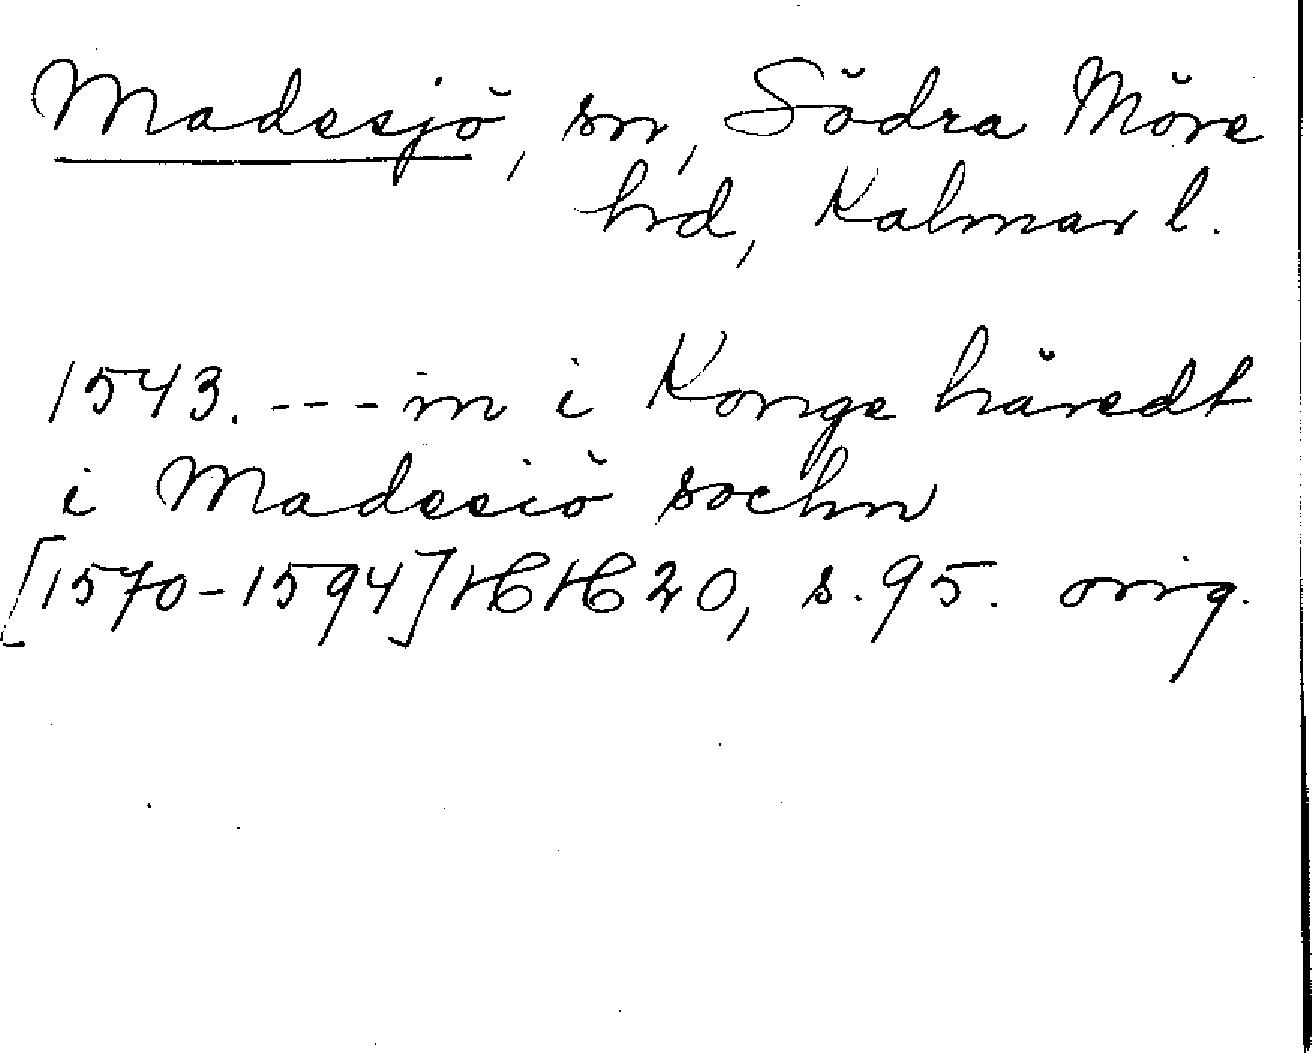 Madesjö, sn, Södra Möre
hd, Kalmar l.
1543. --- in i Konge häredt
i Madesiö sochn
[1570-1594] HH 20, s. 95. orig.